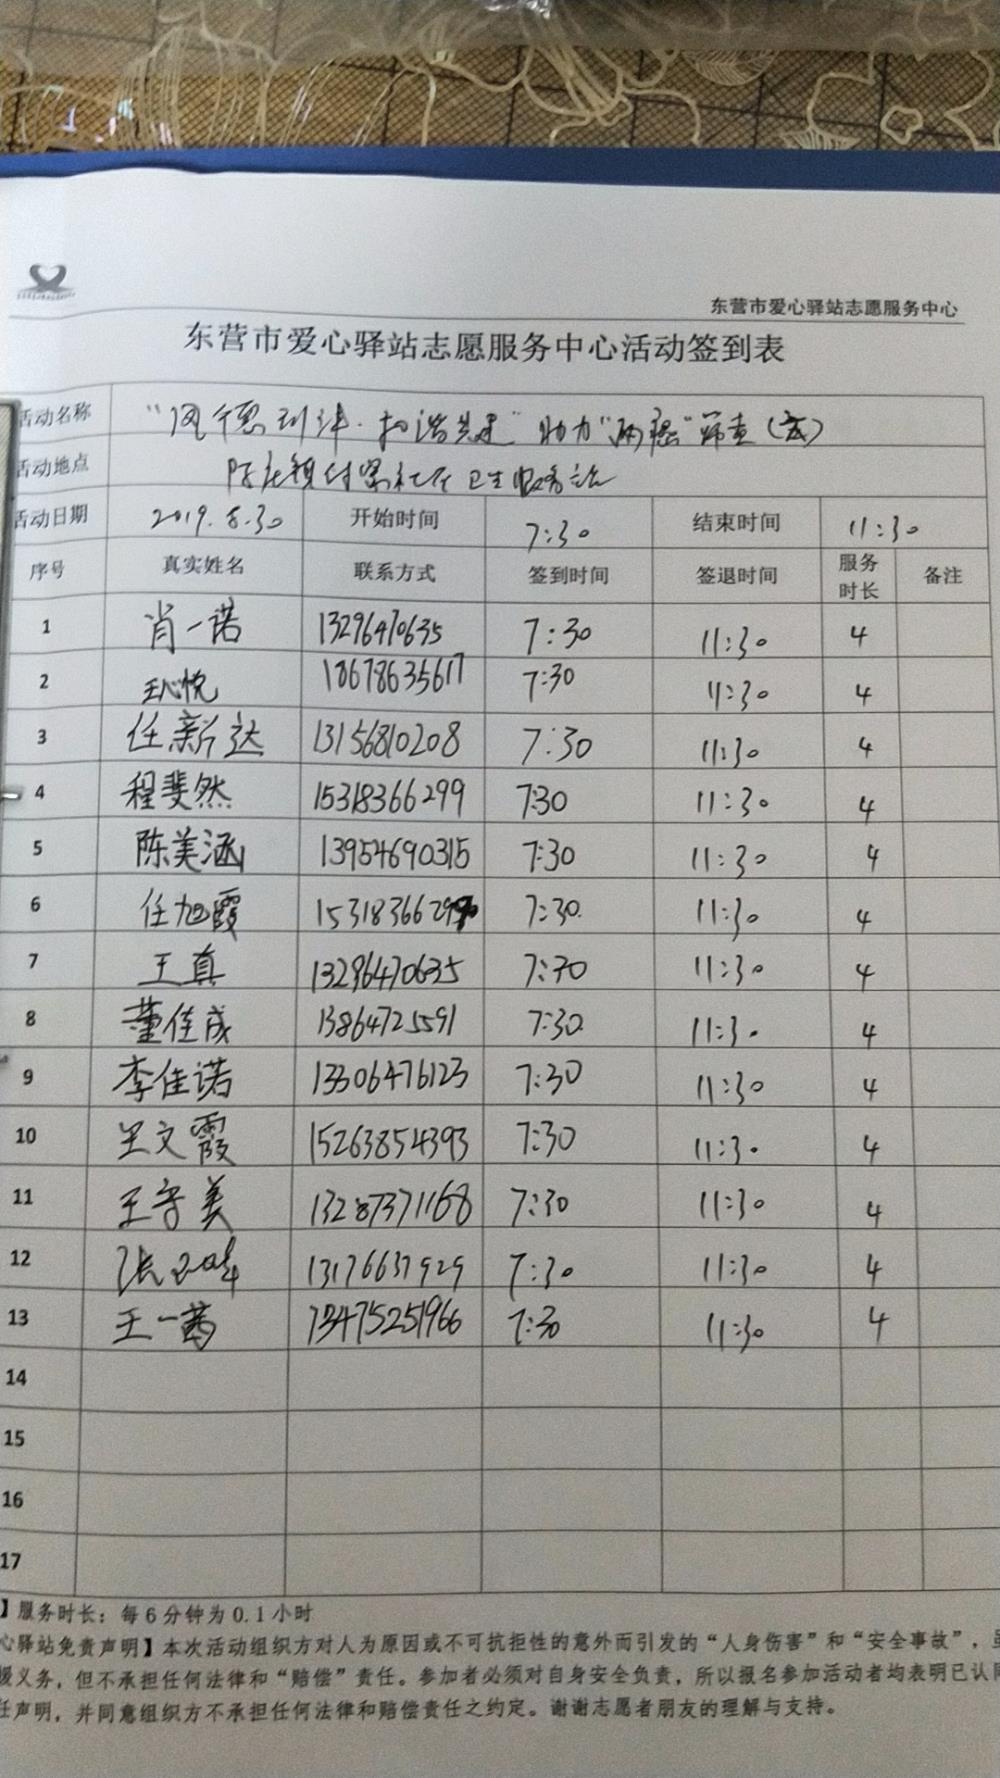 东营市爱心驿站志愿服务中心
东营市爱心驿站志愿服务中心活动签到表
活动名称 "同德利津·和谐共建" 助力"两癌"筛查(六)
活动地点 陈庄镇付窝社区卫生服务站
活动日期 2019.8.30 开始时间 7:30 结束时间 11:30
序号 真实姓名 联系方式 签到时间 签退时间 服务时长 备注
1 肖一诺 13296470635 7:30 11:30 4
2 王心悦 18678635617 7:30 11:30 4
3 任新达 13156810208 7:30 11:30 4
4 程斐然 15318366299 7:30 11:30 4
5 陈美涵 13954690315 7:30 11:30 4
6 任旭霞 1531836629 7:30 11:30 4
7 王真 13296470635 7:30 11:30 4
8 董佳成 13864725591 7:30 11:30 4
9 李佳诺 13306476123 7:30 11:30 4
10 王文霞 15263854393 7:30 11:30 4
11 王守美 13287371168 7:30 11:30 4
12 张 13176637929 7:30 11:30 4
13 王一茜 13475251966 7:30 11:30 4
14
15
16
17
】服务时长：每6分钟为0.1小时
心驿站免责声明】本次活动组织方对人为原因或不可抗拒性的意外而引发的“人身伤害”和“安全事故”，虽
援义务，但不承担任何法律和“赔偿”责任。参加者必须对自身安全负责，所以报名参加活动者均表明已认同
任声明，并同意组织方不承担任何法律和赔偿责任之约定。谢谢志愿者朋友的理解与支持。